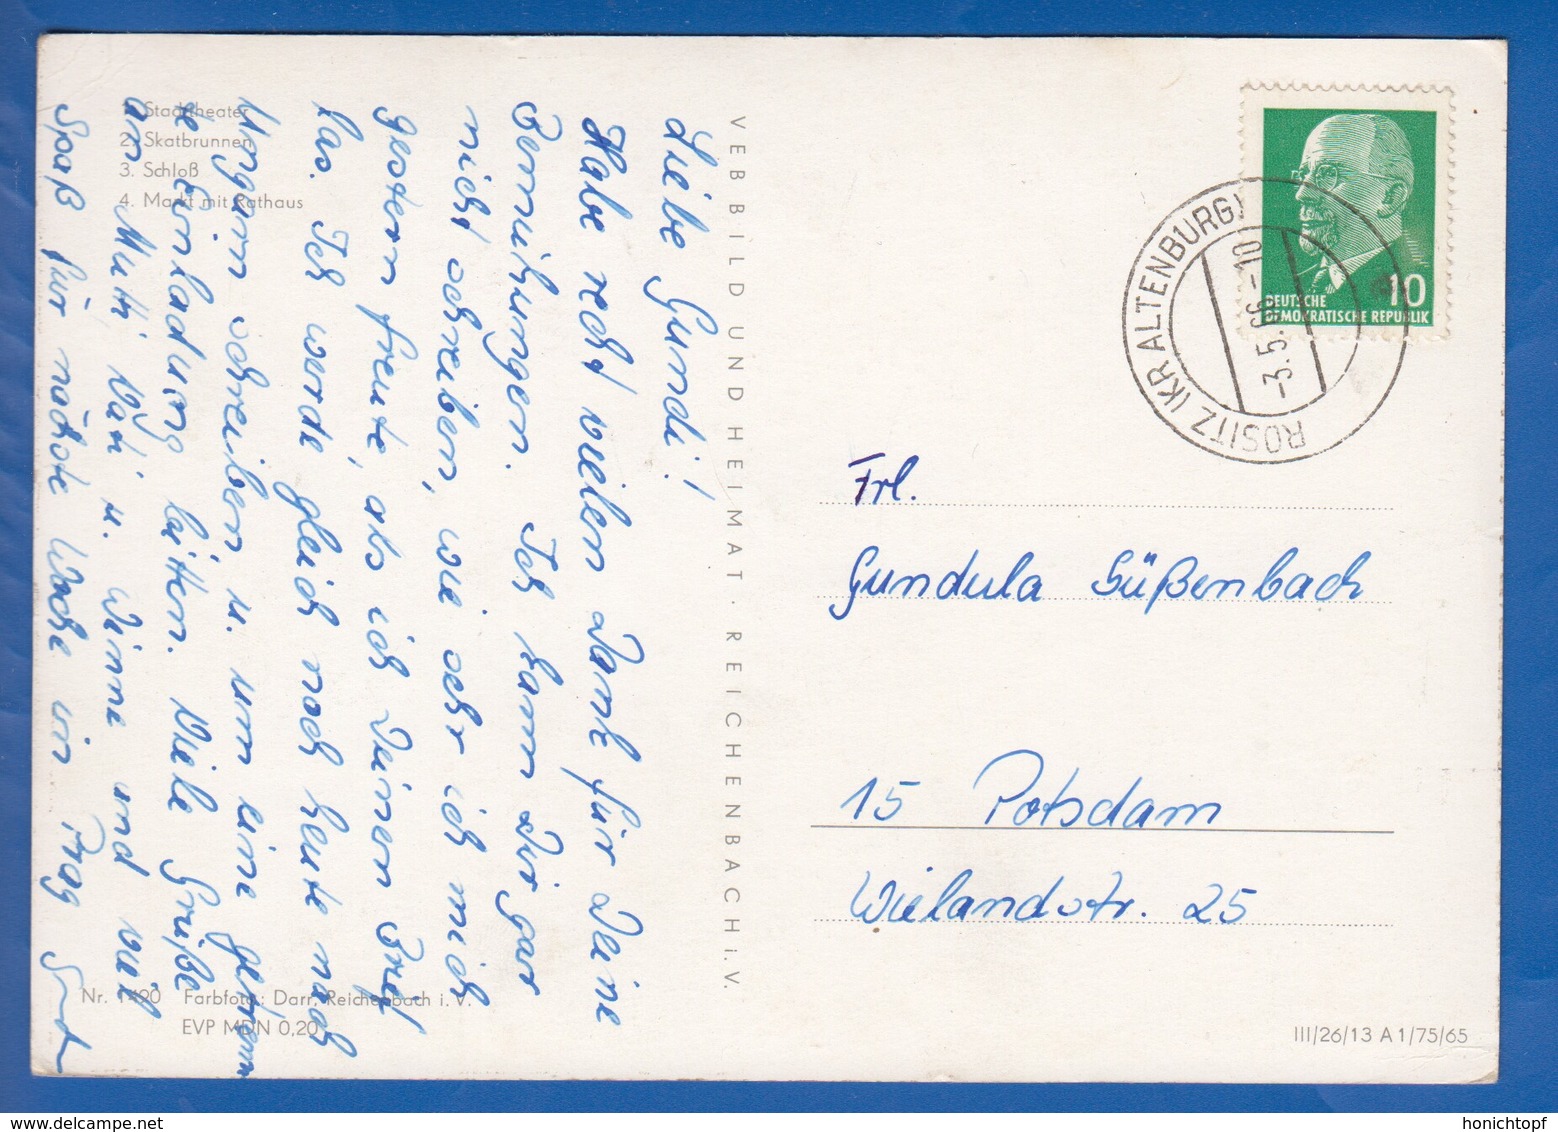 1. Stadttheater
2. Skatbrunnen
3. Schloß
4. Markt mit Rathaus
Liebe Gundi!
Habe recht vielen Dank für Deine
Bemühungen. Ich kann Dir gar
nicht schreiben, wie sehr ich mich
gestern freute, als ich Deinen Brief
las. Ich werde gleich noch heute nach
Ungarn schreiben u. um eine getrennte
Einladung bitten. Viele Grüße
an Mutti, Vati u. und viel
Spaß für nächste Woche in Prag
VEB BILD UND HEIMAT · REICHENBACH i. V.
Nr. 1720 Farbfoto: Darr, Reichenbach i. V.
EVP MDN 0,20
10
DEUTSCHE
DEMOKRATISCHE REPUBLIK
ROSITZ (KR ALTENBURG)
-3.5.66-10
a
Frl.
Gundula Süßenbach
15 Potsdam
Wielandstr. 25
III/26/13 A 1/75/65
honichtopf